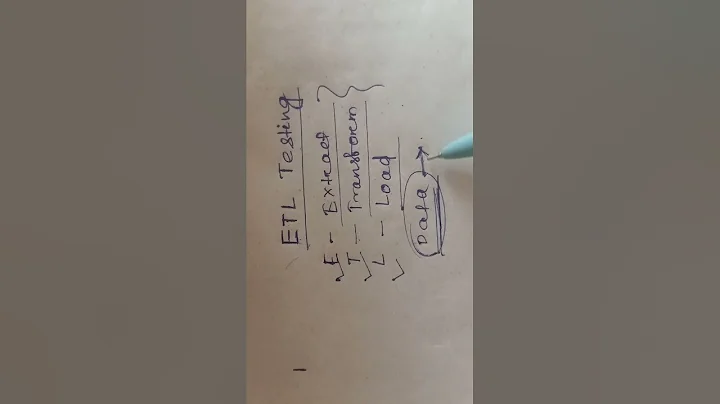 ETL Testing
E - Extract
T - Transform
L - Load
Data →